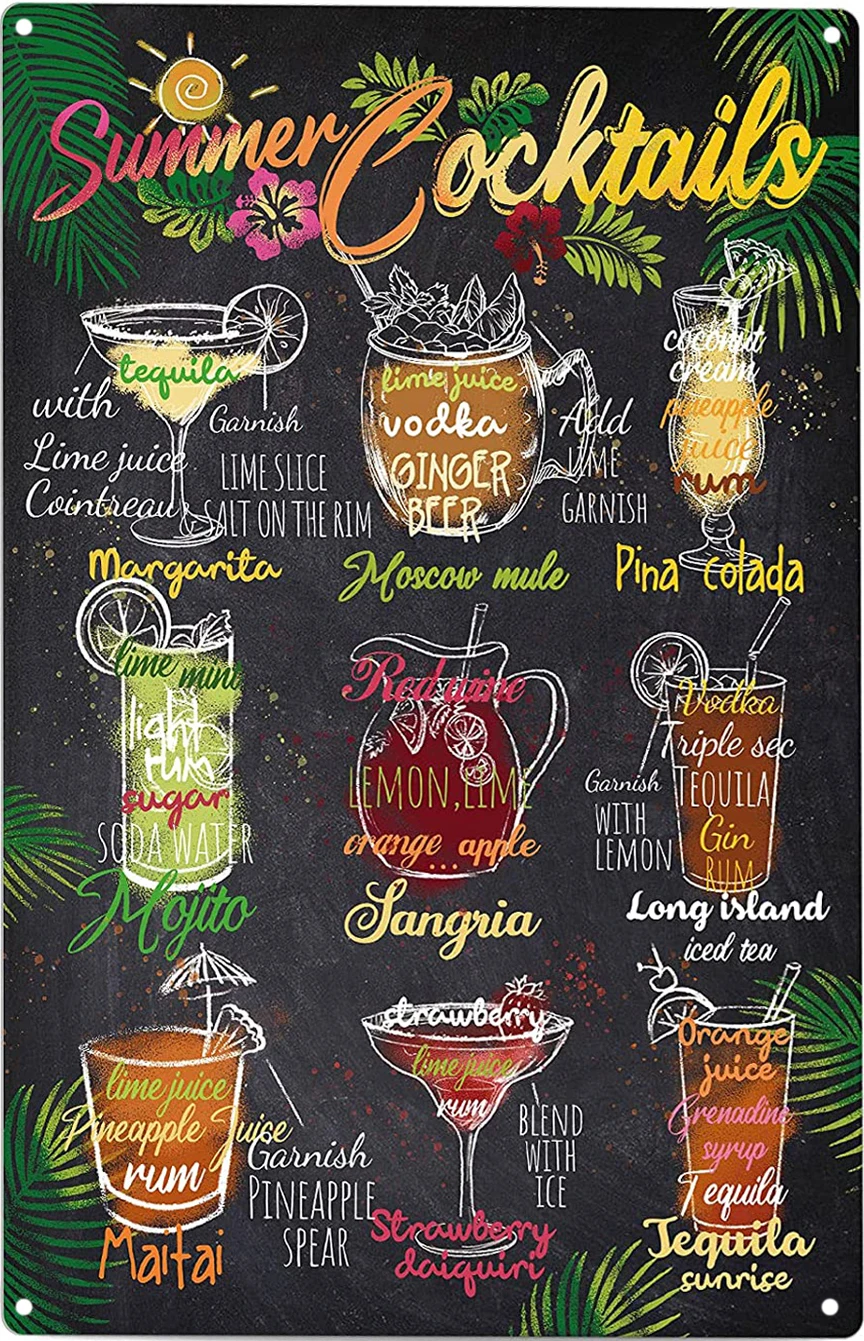 Summer Cocktails
tequila
with
Lime juice
Cointreau
Garnish
LIME SLICE
SALT ON THE RIM
Margarita
lime juice
vodka
GINGER
BEER
Add
LIME
GARNISH
Moscow mule
coconut
cream
pineapple
juice
rum
Pina colada
lime mint
light
rum
sugar
SODA WATER
Mojito
Red wine
LEMON, LIME
orange apple
...
Sangria
Vodka
Triple sec
TEQUILA
Gin
RUM
Garnish
WITH
LEMON
Long island
iced tea
lime juice
Pineapple Juice
rum
Garnish
PINEAPPLE
SPEAR
Maitai
strawberry
lime juice
rum
BLEND
WITH
ICE
Strawberry
daiquiri
Orange
juice
Grenadine
syrup
Tequila
Tequila
sunrise